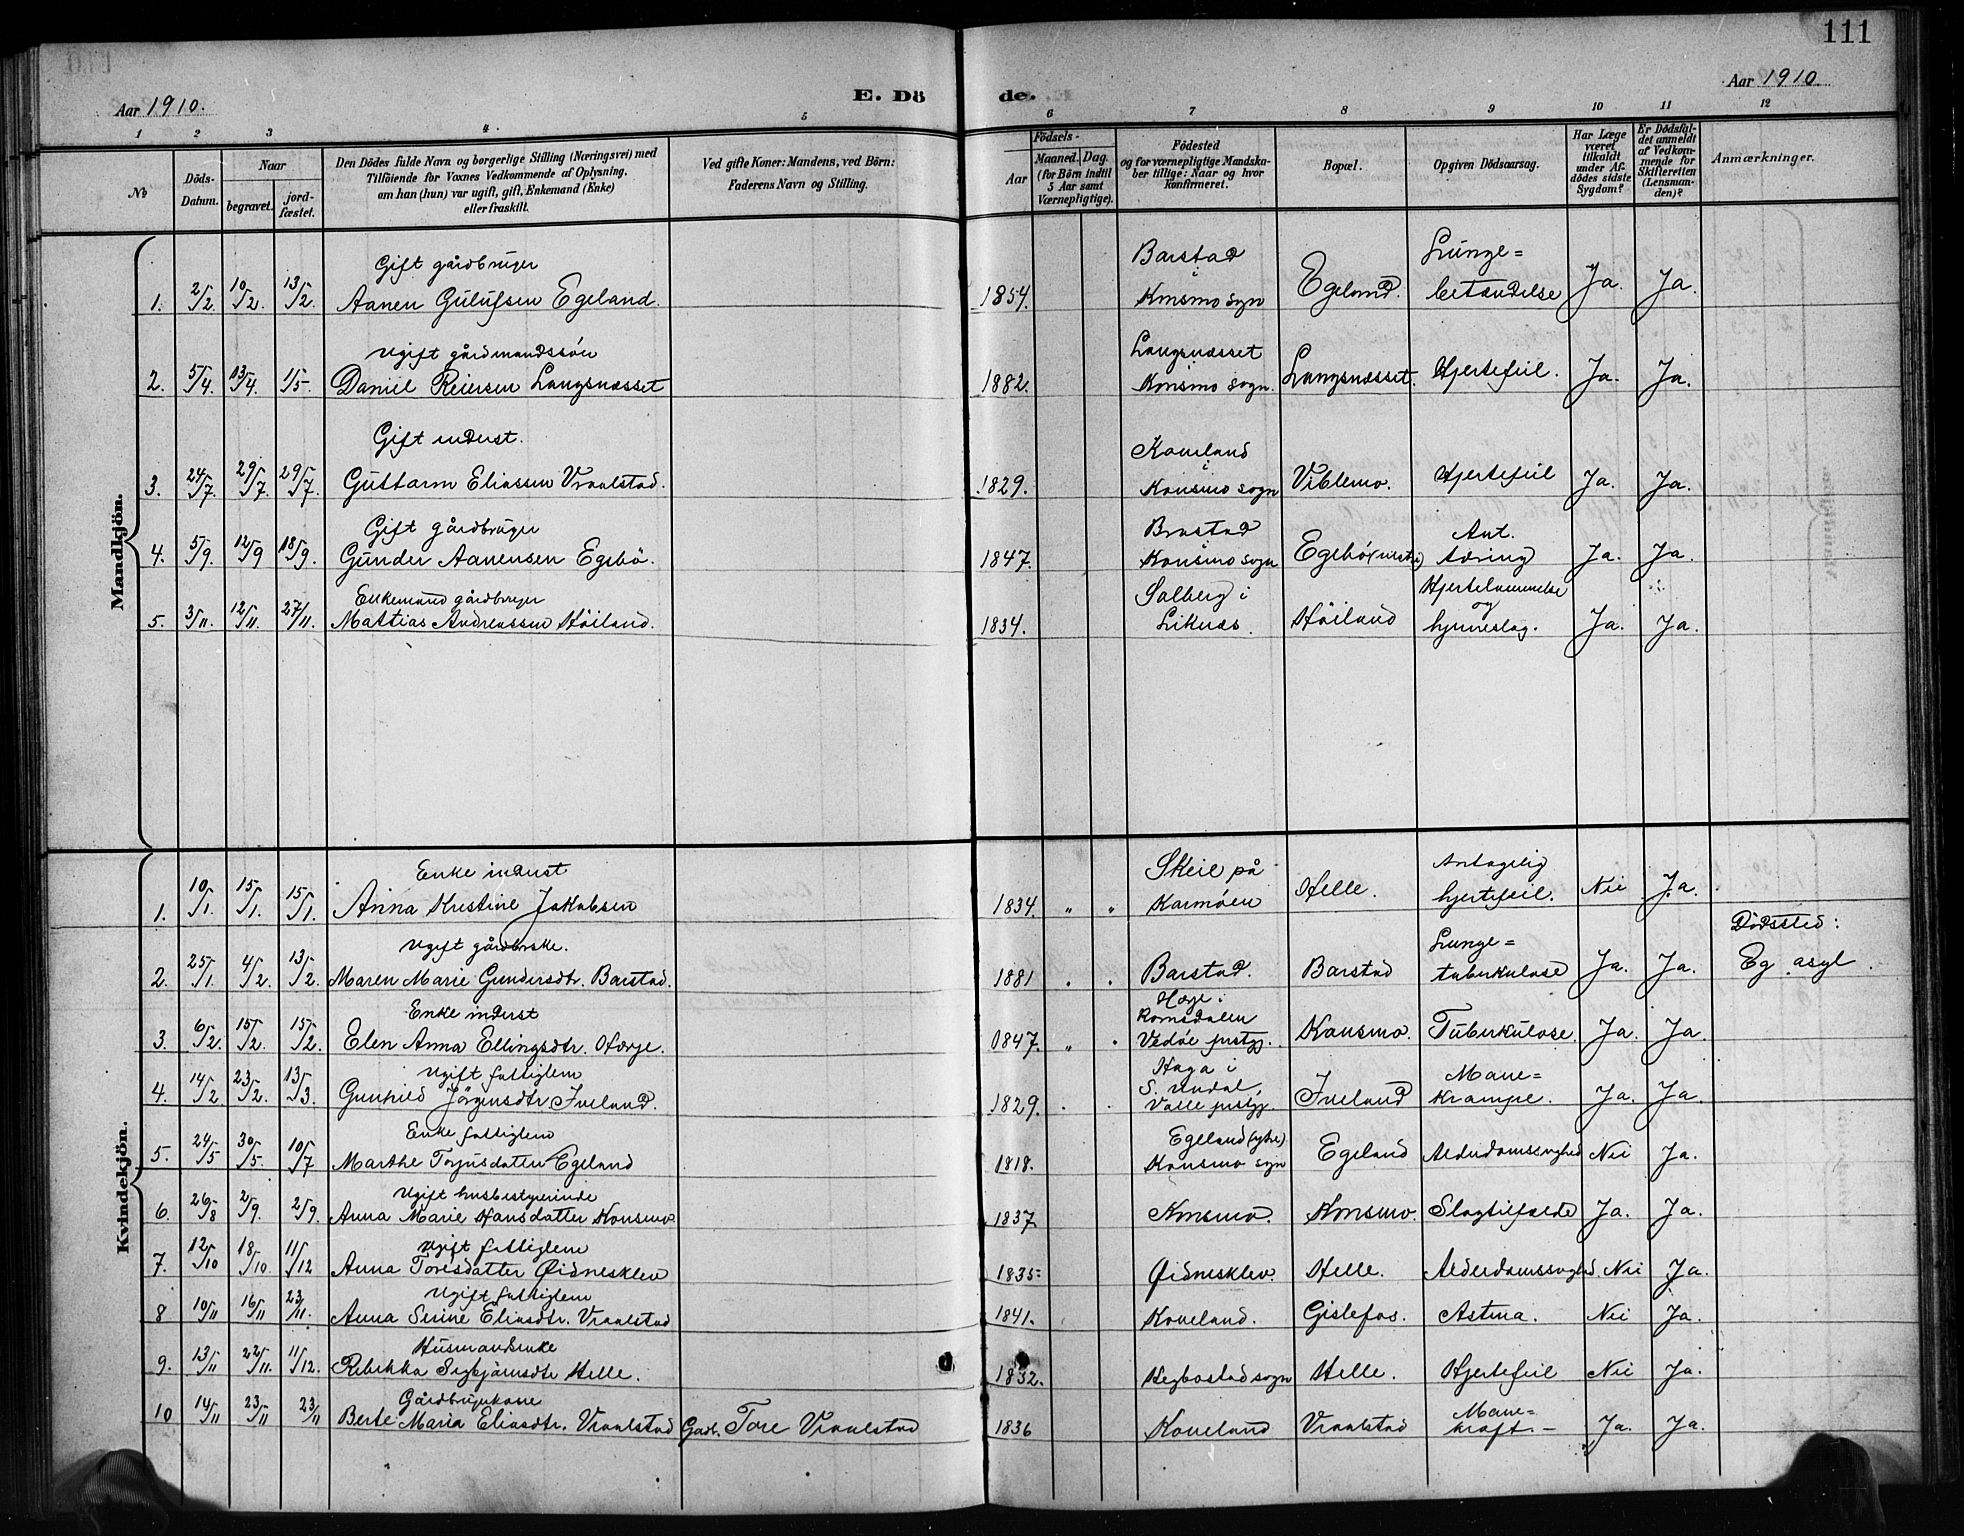 111
Aar 1910.
E. Dö de.
Aar 1910
1 2 3 4. 5 6 7 8 9 10 11 12
No
Döds-Datum.
Naar
begravet.
jordfæstet.
Den Dödes fulde Navn og borgerlige Stilling (Næringsvei) med
Tilföiende for Voxnes Vedkommende af Oplysning,
om han (hun) var ugift, gift, Enkemand (Enke)
eller fraskilt.
Ved gifte Koner: Mandens, ved Börn:
Faderens Navn og Stilling.
Födsels-
Aar
Maaned. Dag.
(for Börn indtil
5 Aar samt
Værnepligtige).
Födested
og for værnepligtige Mandskaber
tillige: Naar og hvor
konfirmeret.
Bopæl.
Opgiven Dödsaarsag.
Har Læge
været
tilkaldt
under Afdödes
sidste
Sygdom?
Er Dödsfaldet
anmeldt
af Vedkommende
for
Skifteretten
(Lensmanden)?
Anmærkninger.
Mandkjön.
Gift gårdbruger Barstad Lunge=
1. 2/2. 10/2. 13/2. Aanen Gulufsen Egeland. 1854. i Konsmo sogn Egeland. betændelse Ja. Ja.
Ugift gårdmandssön Langsnæsset
2. 5/4. 13/4. 1/5. Daniel Reiersen Langsnæsset 1882. Konsmo sogn. Langsnæsset. Hjertefeil. Ja. Ja.
Gift inderst. Koveland
3. 24/7. 29/7. 29/7. Guttorm Eliassen Vraalstad. 1829. i Konsmo sogn Viblemo. Hjertefeil Ja. Ja.
Gift gårdbruger Brastad Ant.
4. 5/9. 12/9 18/9. Gunder Aanensen Egebö. 1847. i Konsmo sogn Egebö tæring Ja. Ja.
Enkemand gårdbruger Salberg i Hjertelammelse og
5. 3/11. 12/11. 27/11. Mattias Andreassen Höiland. 1834. Liknæs. Höiland hjerneslag. Ja. Ja.
Kvindekjön.
Enke inderst Skeie på Antagelig
1. 10/1. 15/1. 15/1. Anna Kristine Jakobsen 1834. " " Karmöen Helle. hjertefeil. Nei Ja.
Ugift gårdbrske. Lunge= Dödssted:
2. 25/1. 4/2. 13/2. Maren Marie Gundersdtr. Barstad. 1881 Barstad. Barstad tuberkulose Ja. Ja. Eg asyl.
Enke inderst i Romsdalen
3. 6/2. 15/2. 15/2. Elen Anna Ellingsdtr. 1847. " Vedöe prstgj. Konsmo. Tuberkulose. Ja. Ja.
Ugift fattiglem Haga i S. Undal, Mave=
4. 14/2. 23/2. 13/3. Gunhild Jörgensdtr. Iveland. 1829. Valle prstgj. Iveland krampe. Ja. Ja
Enke fattiglem Egeland (ytre)
5. 24/5 30/5. 10/7 Marthe Torjusdatter Egeland 1818. Konsmo sogn Egeland Alderdomssvghed Nei Ja.
Ugift husbestyrerinde
6. 26/8 2/9. 2/9. Anna Marie Hansdatter Konsmo 1837. Konsmo. Konsmo. Slagtilfælde Ja. Ja.
Ugift fattiglem
7. 12/10 18/10. 11/12 Anna Toresdatter Øidnesklev 1835. Øidnesklev. Helle. Alderdomssvghed. Nei Ja.
Ugift fattiglem
8 10/11 16/11 23/11. Anna Serine Eliasdtr. Vraalstad 1841. Koveland. Gislefos. Astma. Nei Ja.
Husmandsenke
9. 13/11 22/11. 11/12. Rebekka Sigbjörnsdtr Helle. 1832. Hegbostad sogn Helle. Hjertefeil Nei Ja.
Gårdbrugerkone Mave=
10 14/11 23/11 23/11 Berte Maria Eliasdtr. Vraalstad Gadb. Tore Vraalstad 1836 Koveland Vraalstad kræft. Ja. Ja.